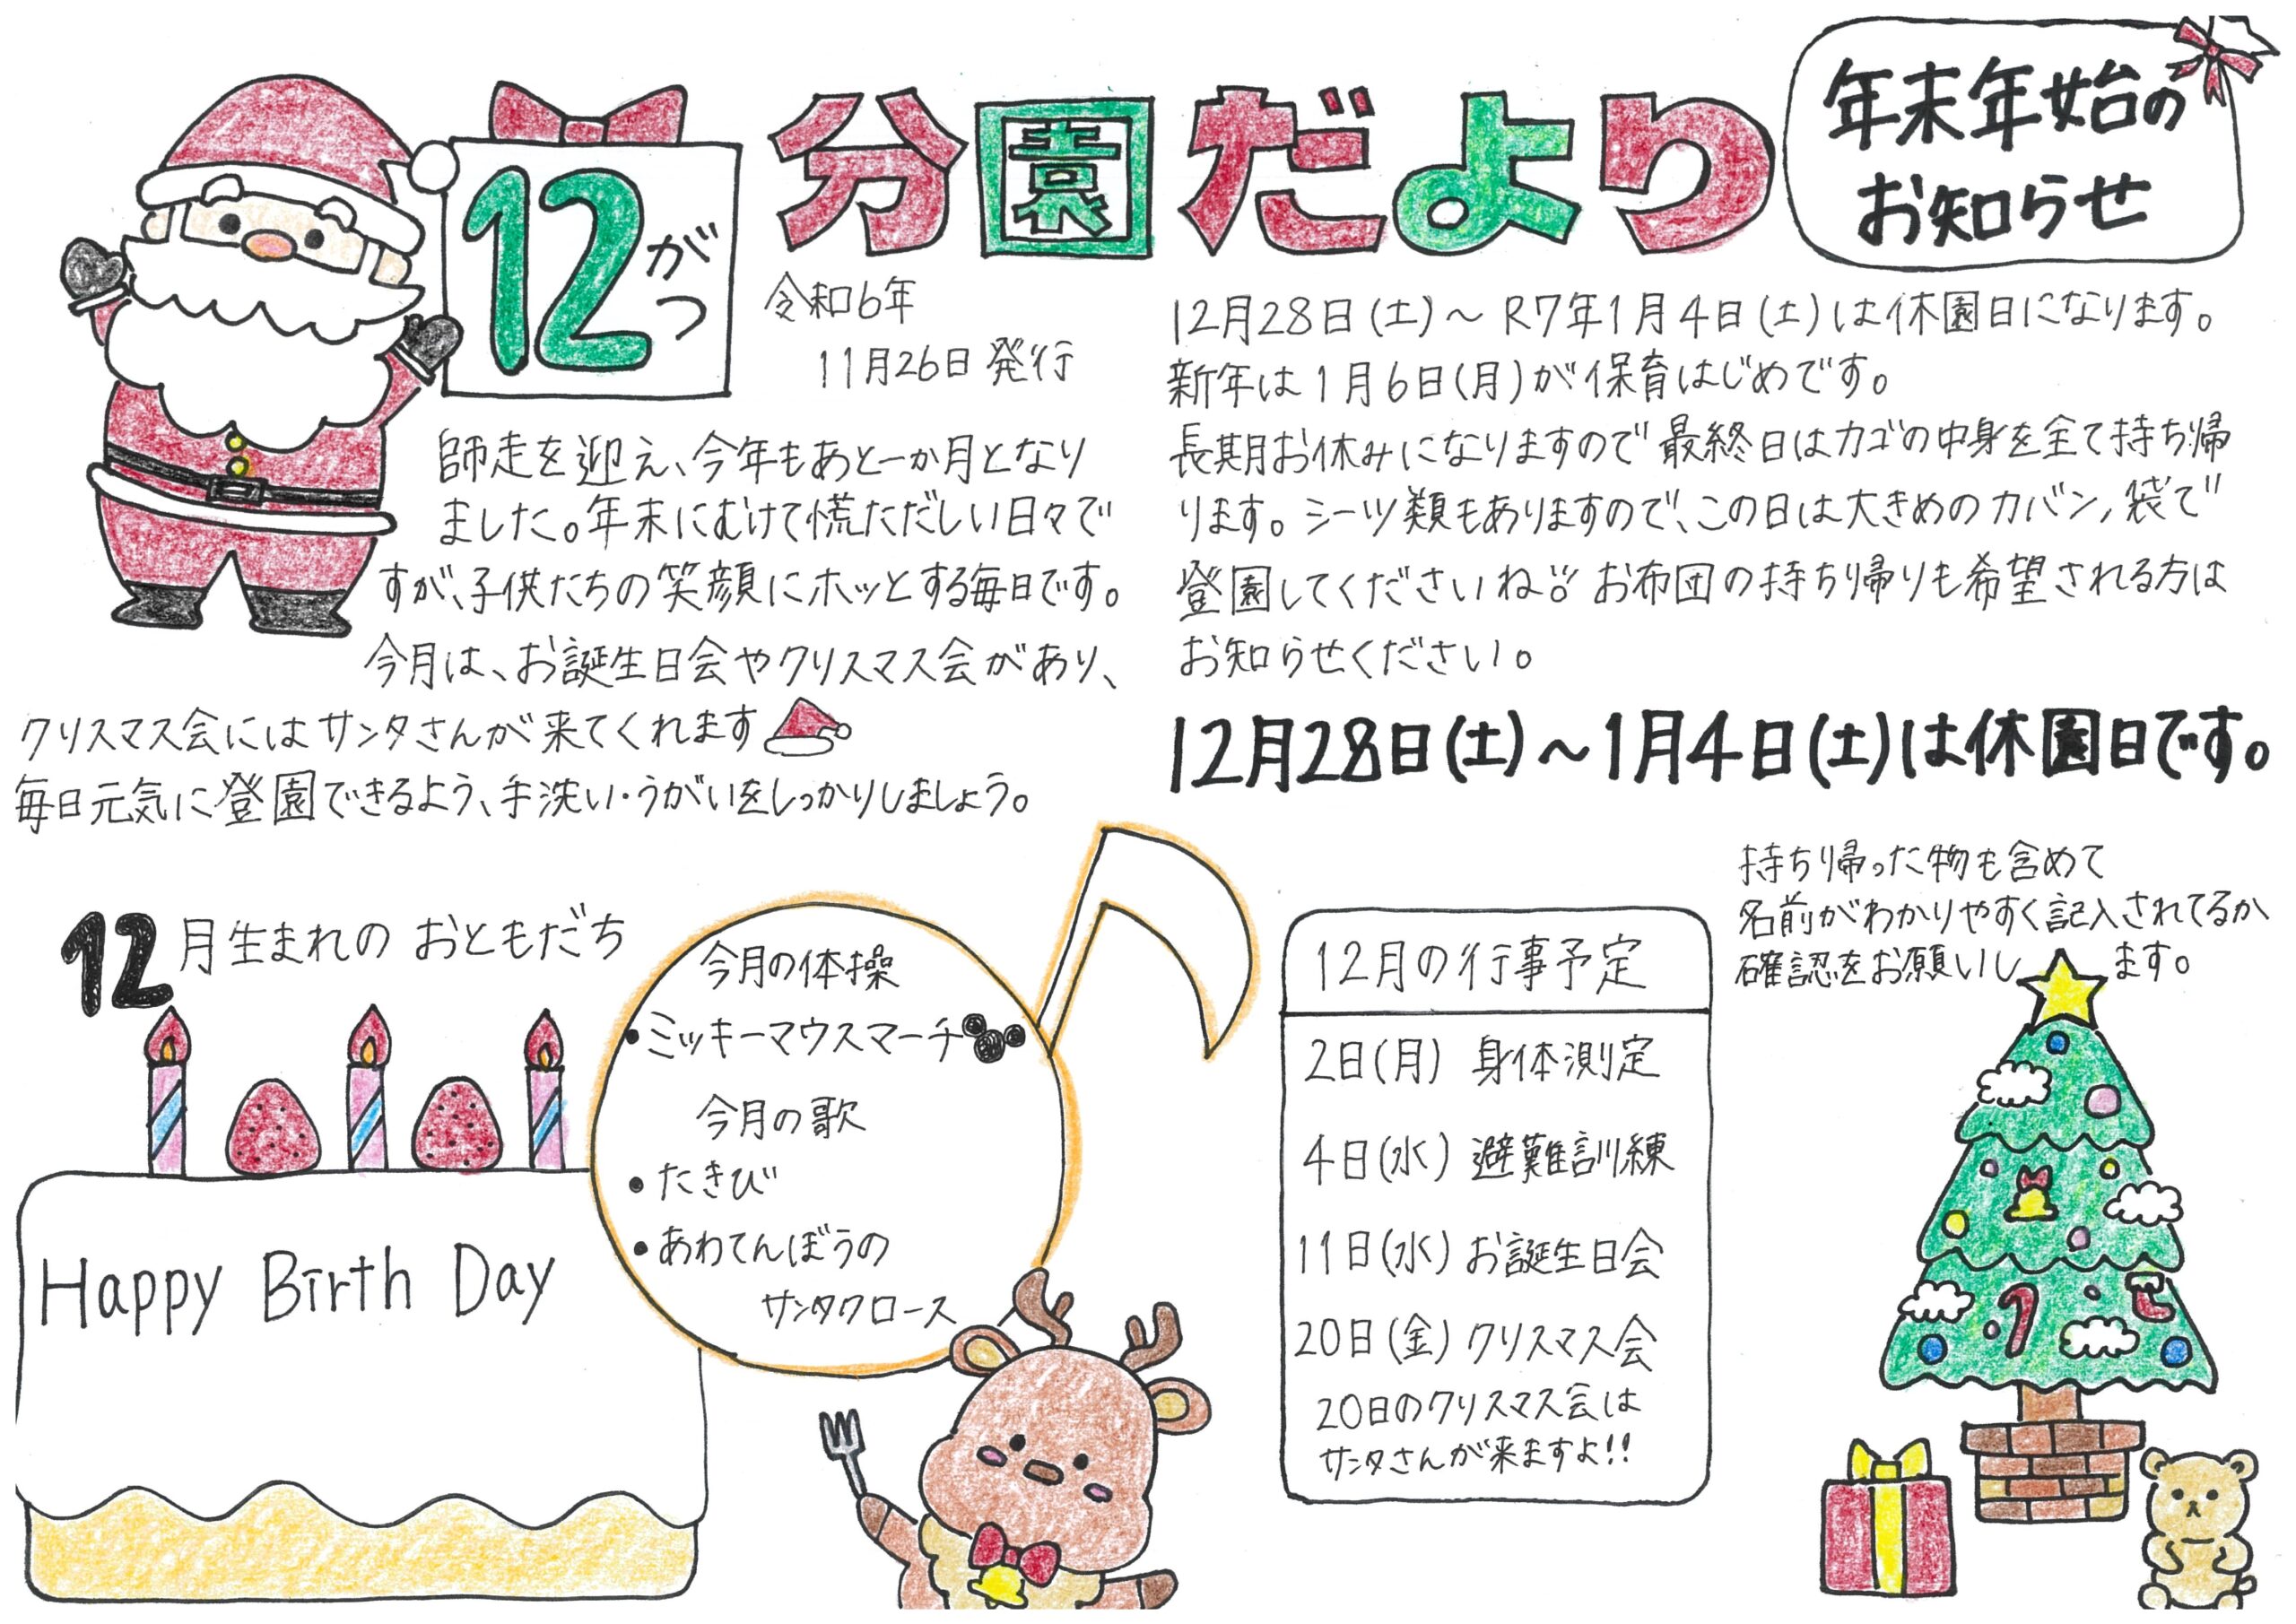 12がつ
分園だより
令和6年
11月26日 発行
師走を迎え、今年もあと一か月となり
ました。年末にむけて慌ただしい日々で
すが、子供たちの笑顔にホッとする毎日です。
今月は、お誕生日会やクリスマス会があり、
クリスマス会にはサンタさんが来てくれます
毎日元気に登園できるよう、手洗い・うがいをしっかりしましょう。
年末年始の
お知らせ
12月28日(土)～R7年1月4日(土)は休園日になります。
新年は1月6日(月)が保育はじめです。
長期お休みになりますので最終日はカゴの中身を全て持ち帰
ります。シーツ類もありますので、この日は大きめのカバン,袋で
登園してくださいね。お布団の持ち帰りも希望される方は
お知らせください。
12月28日(土)～1月4日(土)は休園日です。
持ち帰った物も含めて
名前がわかりやすく記入されてるか
確認をお願いします。
12月生まれの おともだち
Happy Birth Day
今月の体操
・ミッキーマウスマーチ
今月の歌
・たきび
・あわてんぼうの
サンタクロース
12月の行事予定
2日(月) 身体測定
4日(水) 避難訓練
11日(水) お誕生日会
20日(金) クリスマス会
20日のクリスマス会は
サンタさんが来ますよ!!